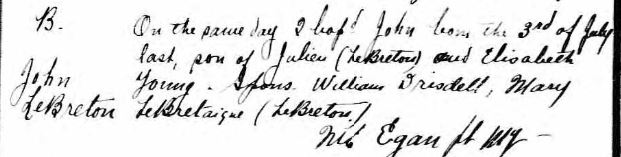 B. On the same day I bapd John born the 3rd of July
last, son of Julien (LeBreton) and Elisabeth
John Young. Spons. William Drisdell, Mary
LeBreton LeBretaigne (LeBreton.)
Egan pt